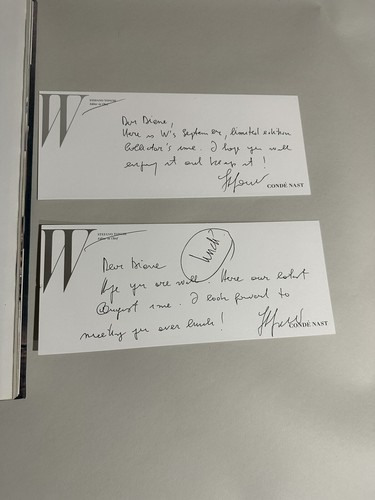 W
STEFANO TONCHI
Dear Diane,
Here is W's September, limited edition
Collector's issue. I hope you will
enjoy it and keep it!
CONDÉ NAST
W
STEFANO TONCHI
lunch?
Dear Diane
Hope you are well. Here our latest
August issue. I look forward to
meeting you over lunch!
CONDÉ NAST